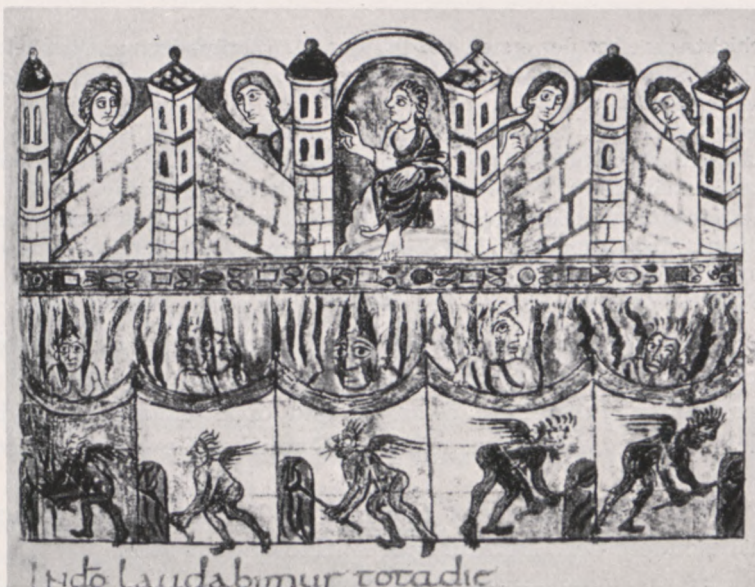 Indō laudabimur tota die